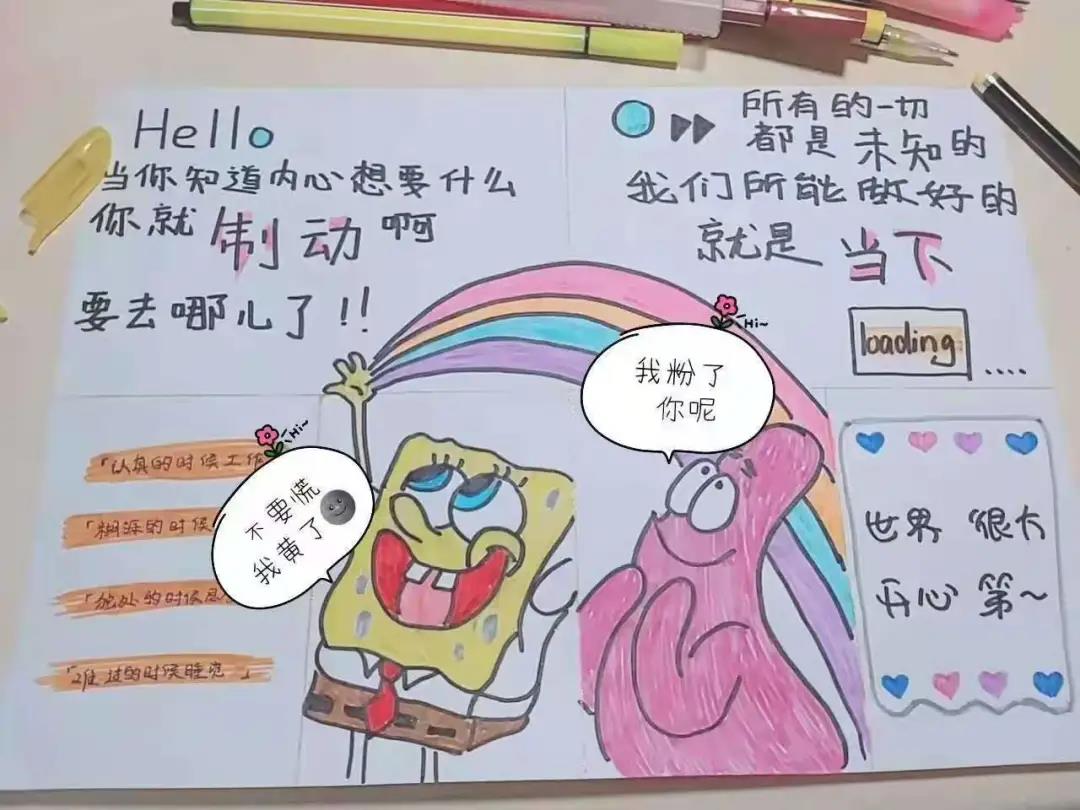 Hello
当你知道内心想要什么
你就制动啊
要去哪儿了!!
所有的一切
都是未知的
我们所能做好的
就是当下
loading
....
Hi~
我粉了
你呢
Hi~
不要慌
我黄了
「认真的时候工作
「糊涂的时候
「独处的时候
「难过的时候睡觉」
世界 很大
开心 第~